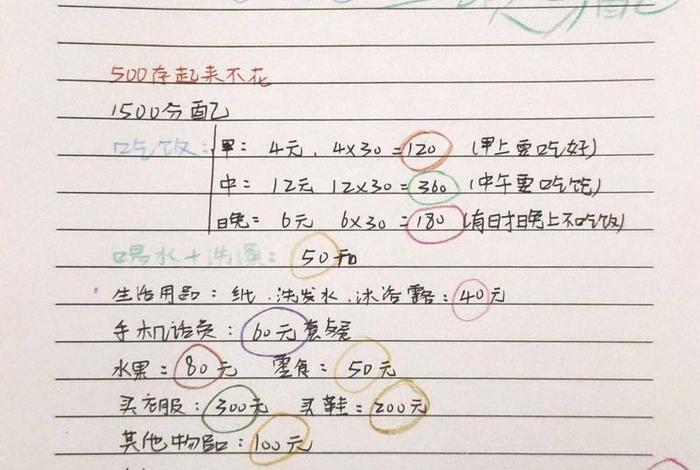 500存起来不花
1500分配
吃饭：早：4元，4×30=120（早上要吃好）
中：12元 12×30=360（中午要吃饱）
晚：6元 6×30=180（有时晚上不吃饭）
喝水+洗澡：50元
生活用品：纸、洗发水、沐浴露：40元
手机话费：60元套餐
水果：80元 零食：50元
买衣服：300元 买鞋：200元
其他物品：100元